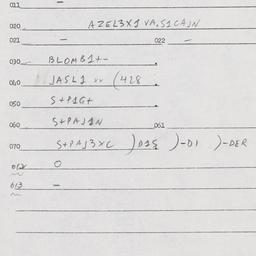 011 -
020 AZEL3X1 VA,S1CAJN
021 - 022 -
030 BLOMB1+-
040 JASL1 vv (428
050 S+P1G+
060 S+PAJ1N 061
070 S+PAJ3XC )D1S )-DI )-DER
012 O
013 -